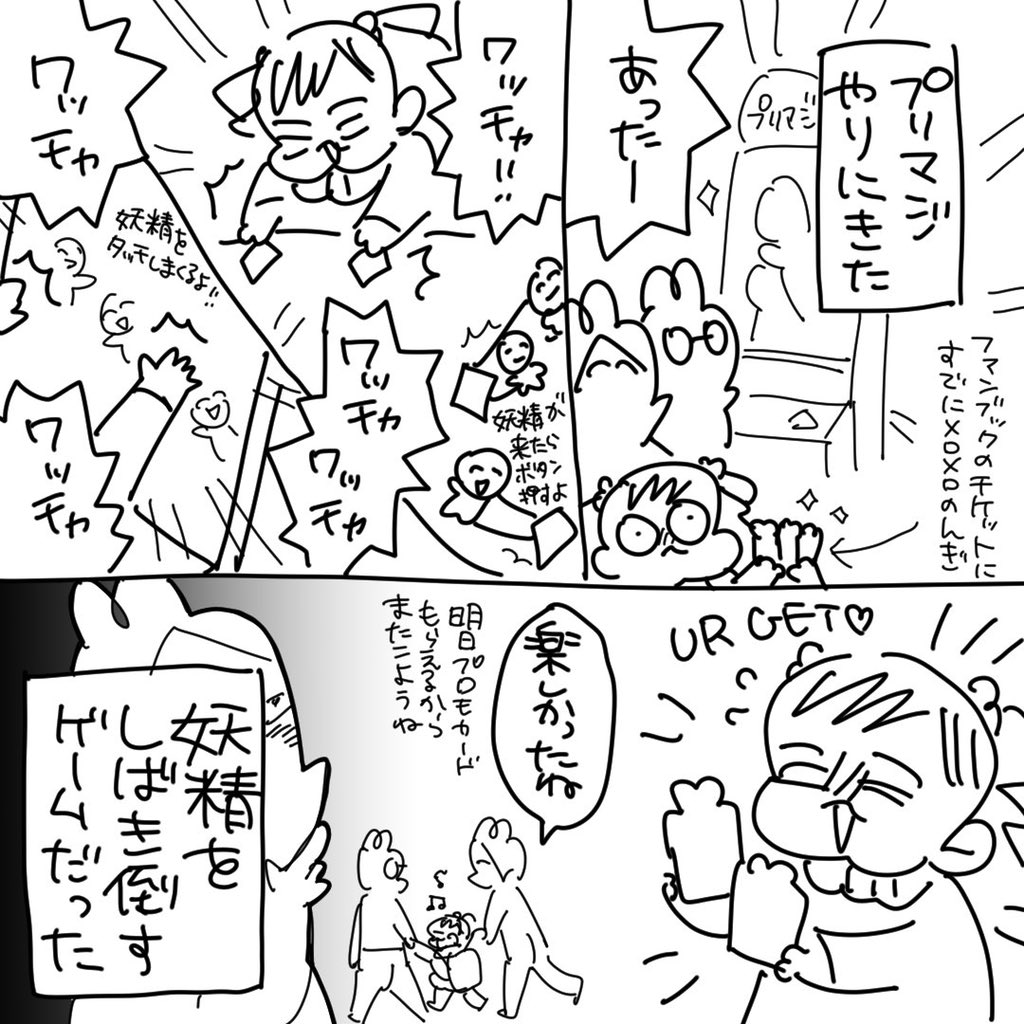 プリマジ
やりにきた
プリマジ
あったー
ファンブックのチケットに
すでにメロメロのんぎ
ワッチャ!!
ワッ
チャ
妖精が
来たら
ボタン
押すよ
ワッ
チャ
ワッ
チャ
妖精を
タッチしまくるよ!!
ワッ
チャ
UR GET♡
楽しかったね
明日プロモカード
もらえるから
またこようね
妖精を
しばき倒す
ゲームだった